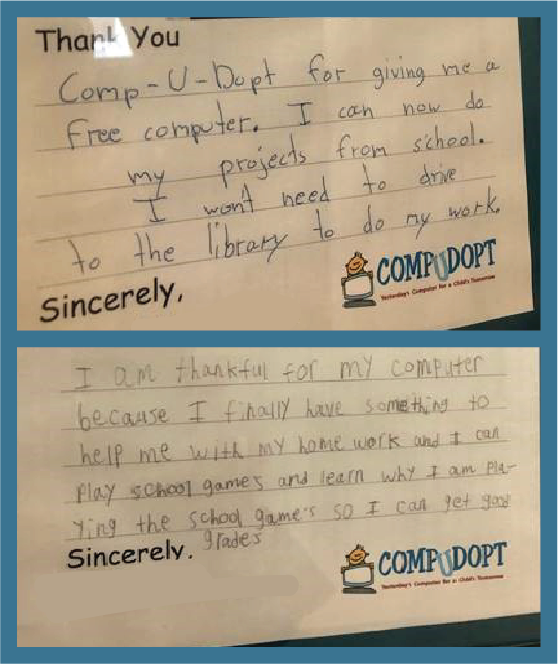 Thank You
Comp-U-Dopt for giving me a
free computer. I can now do
my projects from school.
I wont need to drive
to the library to do my work.
Sincerely,
COMPUDOPT
Yesterday's Computer for a Child's Tomorrow
I am thankful for my computer
because I finally have something to
help me with my home work and I can
play school games and learn why I am pla-
ying the school game's so I can get good
grades
Sincerely,
COMPUDOPT
Yesterday's Computer for a Child's Tomorrow